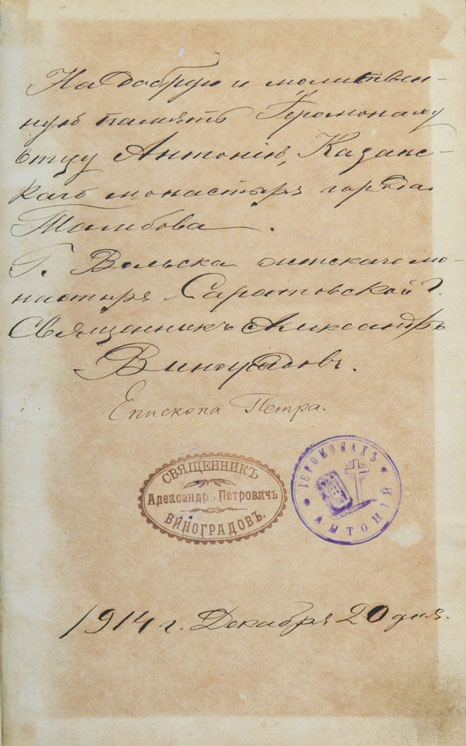 На добрую и молитвен-
ную память Іеромонаху
Отцу Антонію, Казан-
скаго монастыря города
Тамбова.
Г. Вольска скитскаго мо-
настыря Саратовской Г.
Священникъ Александръ
Виноградовъ.
Епископа Петра.
СВЯЩЕННИКЪ
Александръ Петровичъ
ВИНОГРАДОВЪ.
ІЕРОМОНАХЪ
АНТОНІЙ
1914 г. Декабря 20 дня.